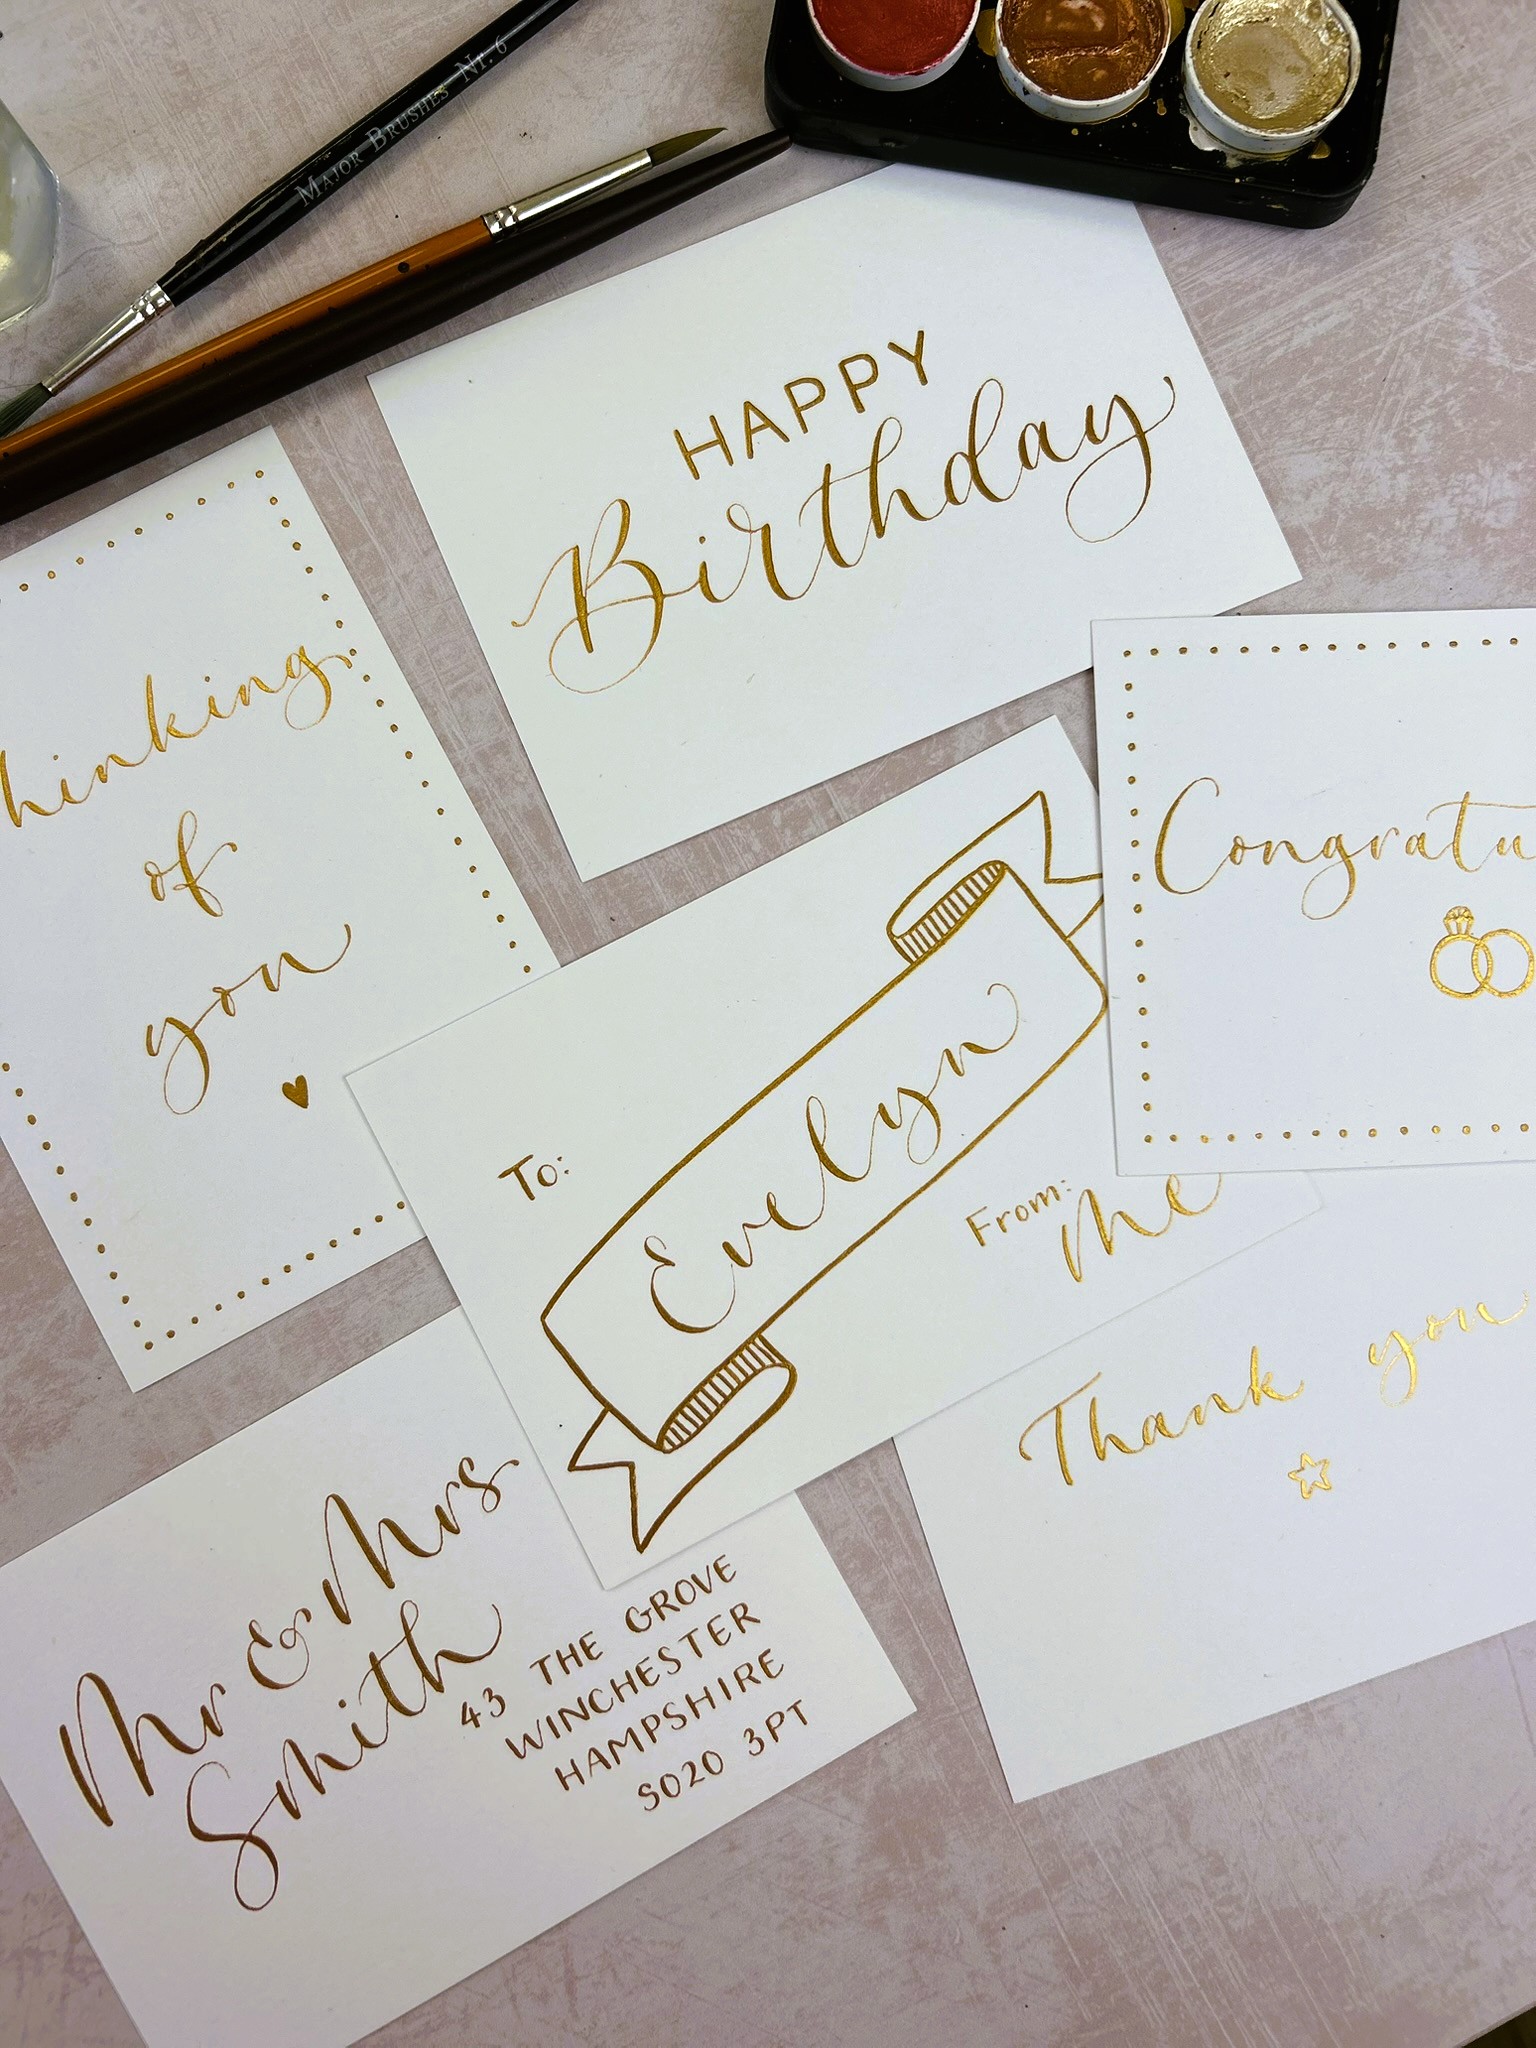 MAJOR BRUSHES Nr. 6
HAPPY
Birthday
hinking
of
you
Congratu
To:
Evelyn
From:
Me
Thank you
Mr & Mrs
Smith
43 THE GROVE
WINCHESTER
HAMPSHIRE
SO20 3PT